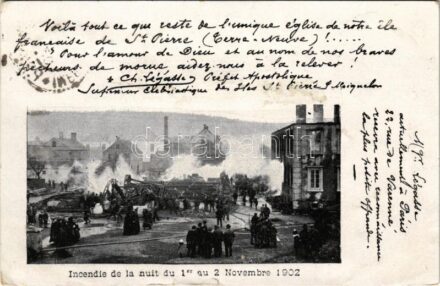 Voilà tout ce que reste de l'unique église de notre île
française de St Pierre (Terre-Neuve) !.....
"Pour l'amour de Dieu et au nom de nos braves
pêcheurs de morue aidez-nous à la relever !
+ Ch. Légasse, Préfet Apostolique
Supérieur Ecclésiastique des Iles St Pierre & Miquelon
Mgr Légasse
actuellement à Paris
22, rue de Varenne
recevra avec reconnaissance
la plus petite offrande.
darabanth.com
Incendie de la nuit du 1er au 2 Novembre 1902